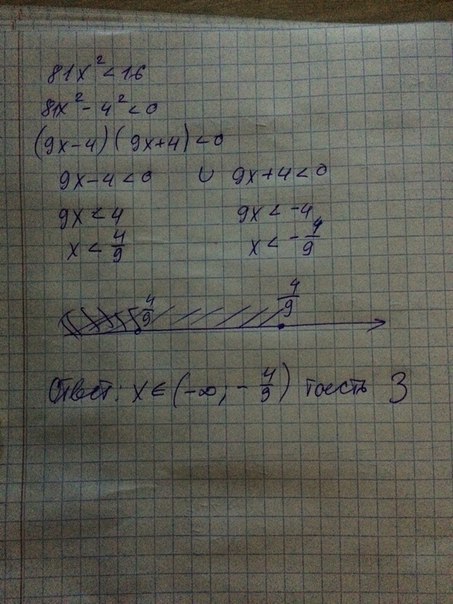 81x² < 16
81x² - 4² < 0
(9x-4)(9x+4) < 0
9x-4 < 0 ∪ 9x+4 < 0
9x < 4 9x < -4
x < 4/9 x < -4/9
-4/9 4/9
Ответ: x ∈ (-∞, -4/9) тоесть 3